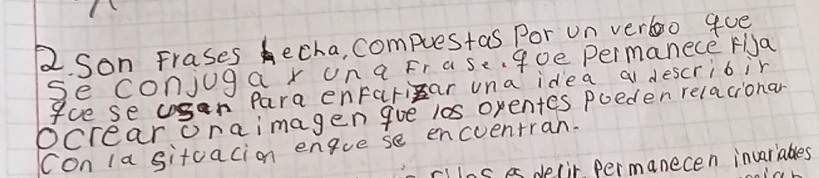 2. Son Frases hecha, compuestas por un verbo que
se conjuga y una Frase. que permanece Fija
que se usan para enfatizar una idea al describir
o crear una imagen que los oyentes pueden relacionar
con la situacion en que se encuentran.
es decir permanecen invariables